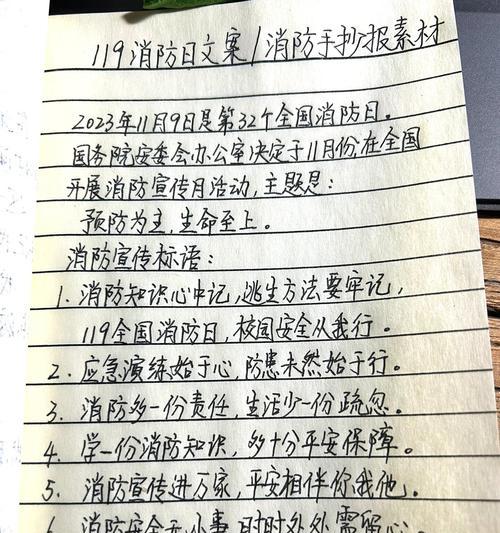 119消防日文案/消防手抄报素材
2023年11月9日是第32个全国消防日。
国务院安委会办公室决定于11月份,在全国
开展消防宣传月活动,主题是:
预防为主,生命至上。
消防宣传标语:
1.消防知识心中记,逃生方法要牢记,
119全国消防日,校园安全从我行。
2.应急演练始于心,防患未然始于行。
3.消防多一份责任,生活少一份疏忽。
4.学一份消防知识,多十分平安保障。
5.消防宣传进万家,平安相伴你我他。
6.消防安全无小事,时时处处需留心。